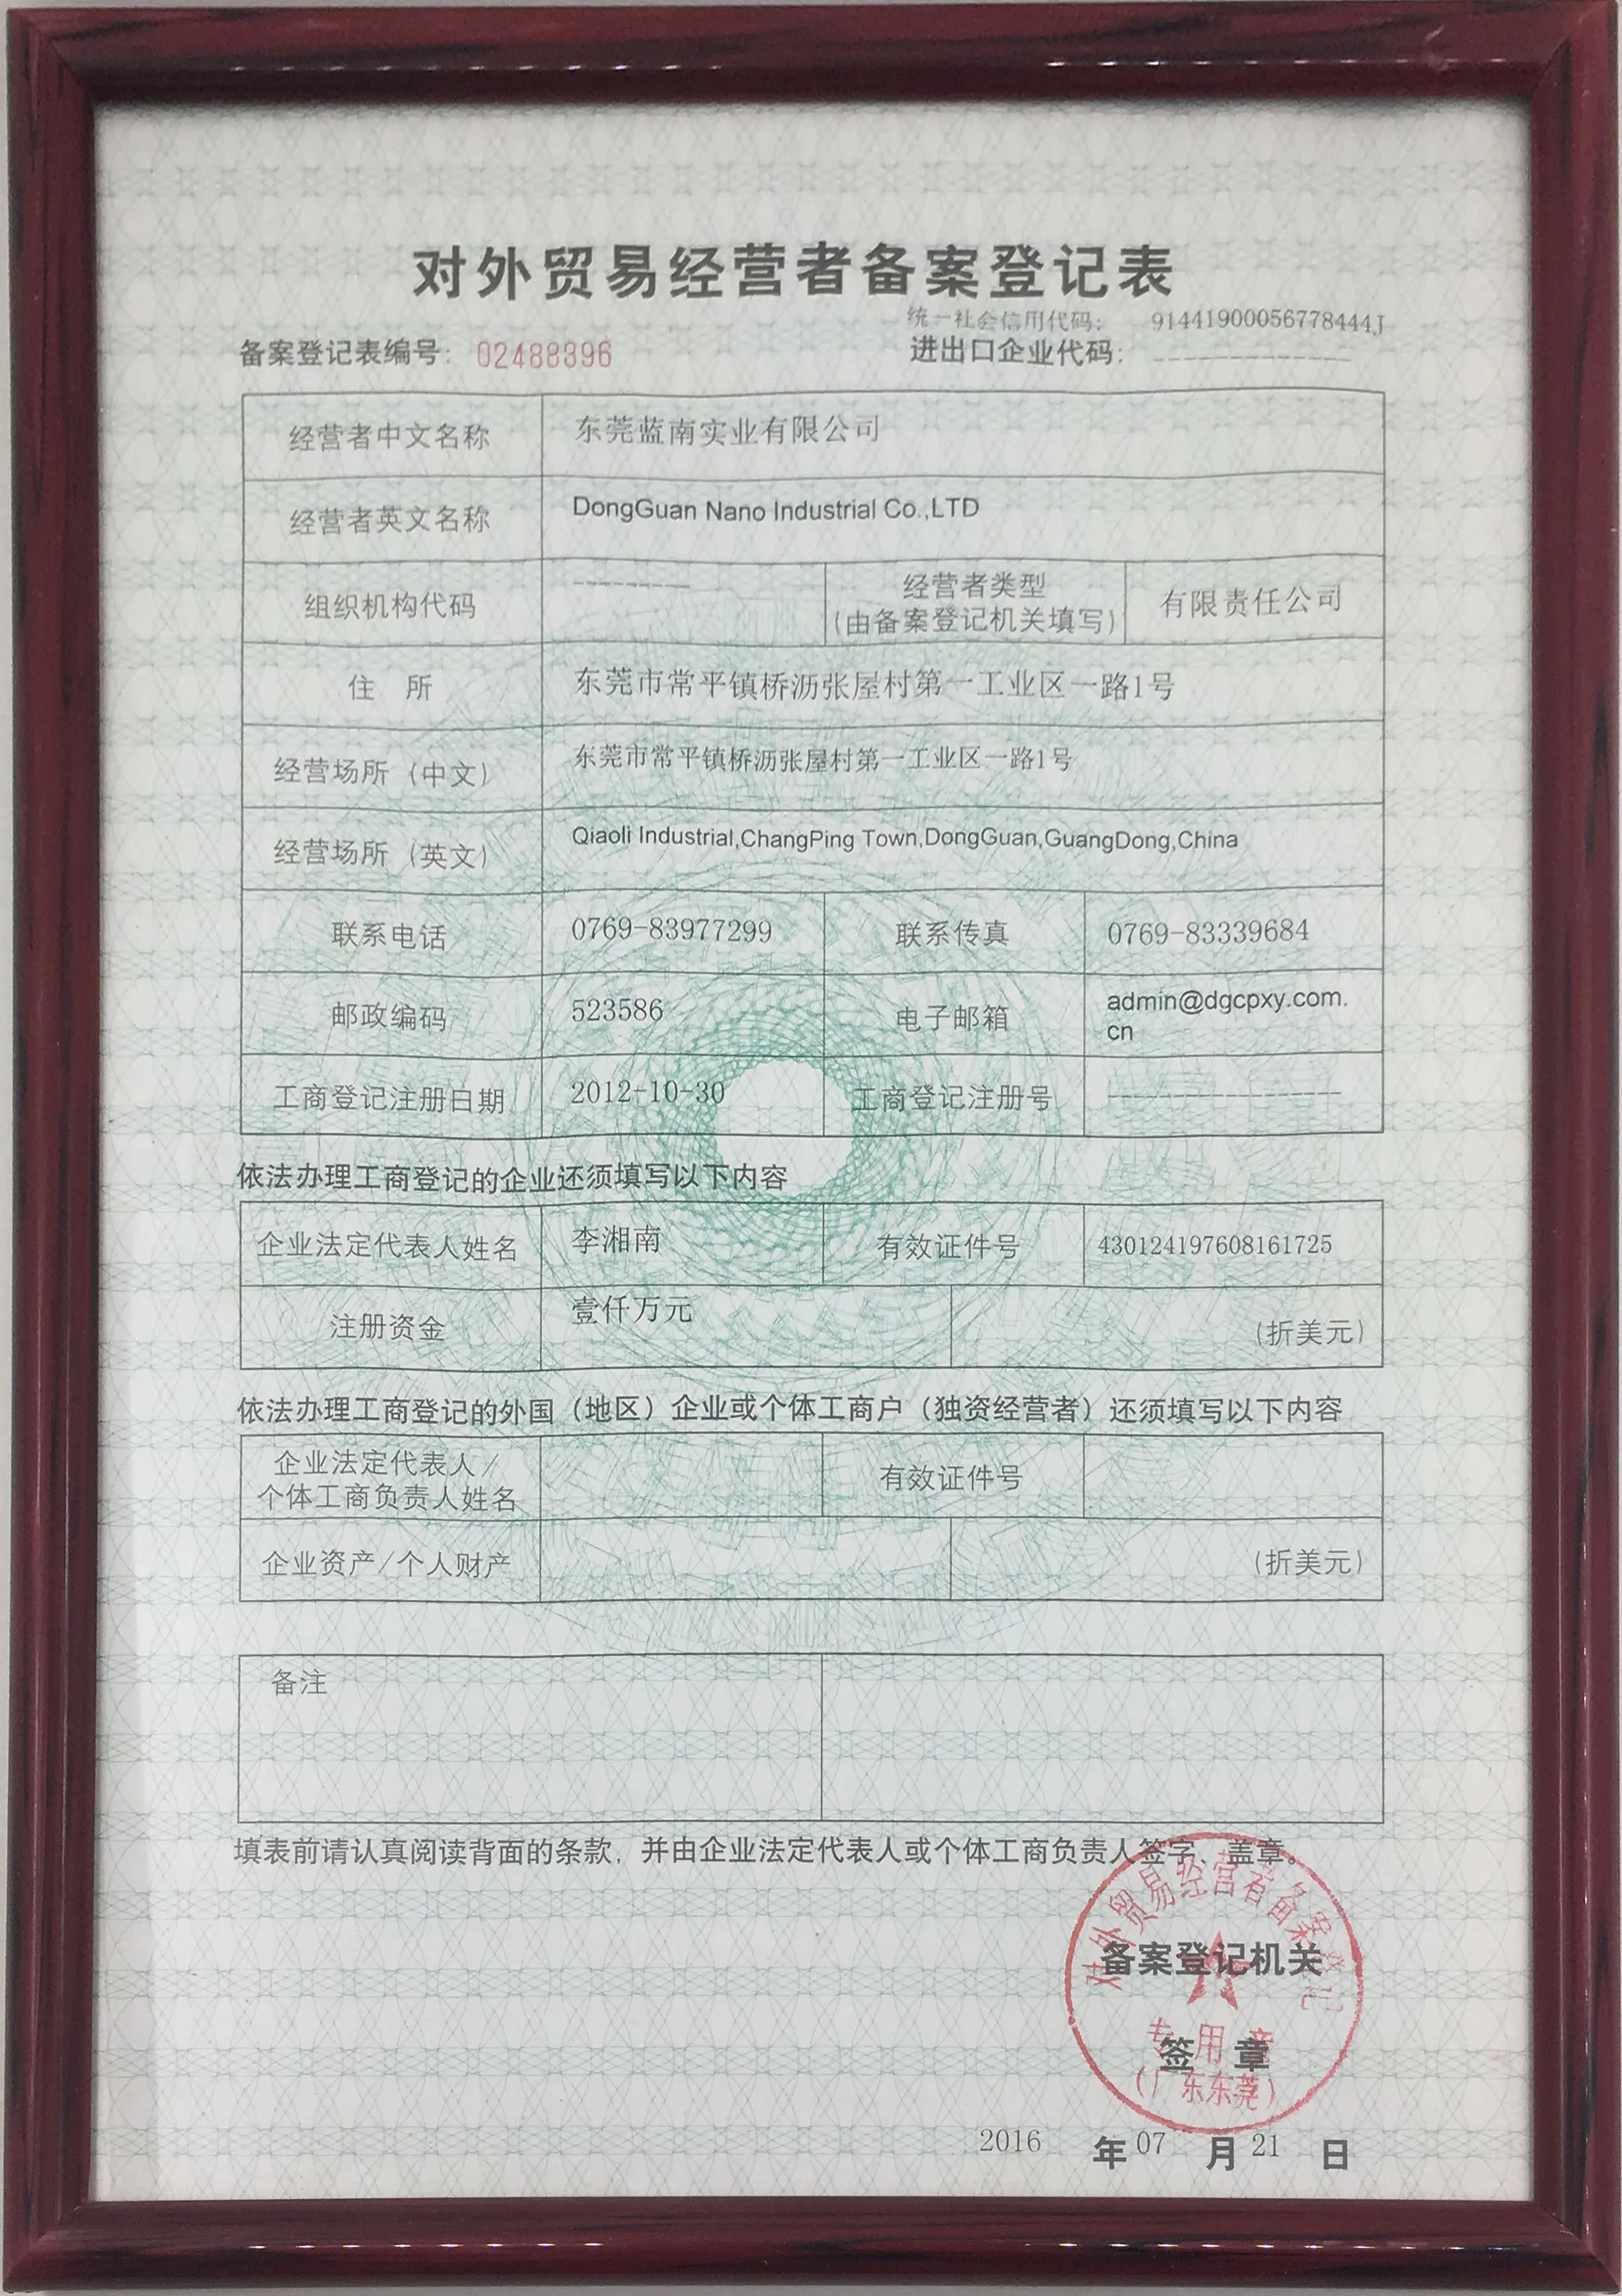 对外贸易经营者备案登记表
统一社会信用代码： 91441900056778444J
备案登记表编号： 02488396
进出口企业代码： -------------
经营者中文名称 东莞蓝南实业有限公司
经营者英文名称 DongGuan Nano Industrial Co.,LTD
组织机构代码 --------- 经营者类型 有限责任公司
(由备案登记机关填写)
住 所 东莞市常平镇桥沥张屋村第一工业区一路1号
经营场所（中文） 东莞市常平镇桥沥张屋村第一工业区一路1号
经营场所（英文） Qiaoli Industrial,ChangPing Town,DongGuan,GuangDong,China
联系电话 0769-83977299 联系传真 0769-83339684
邮政编码 523586 电子邮箱 admin@dgcpxy.com.
cn
工商登记注册日期 2012-10-30 工商登记注册号 ------------------
依法办理工商登记的企业还须填写以下内容
企业法定代表人姓名 李湘南 有效证件号 430124197608161725
注册资金 壹仟万元 (折美元)
依法办理工商登记的外国（地区）企业或个体工商户（独资经营者）还须填写以下内容
企业法定代表人/
个体工商负责人姓名 有效证件号
企业资产/个人财产 (折美元)
备注
填表前请认真阅读背面的条款，并由企业法定代表人或个体工商负责人签字、盖章。
对外贸易经营者备案登记
备案登记机关
专用章
签 章
(广东东莞)
2016 年 07 月 21 日